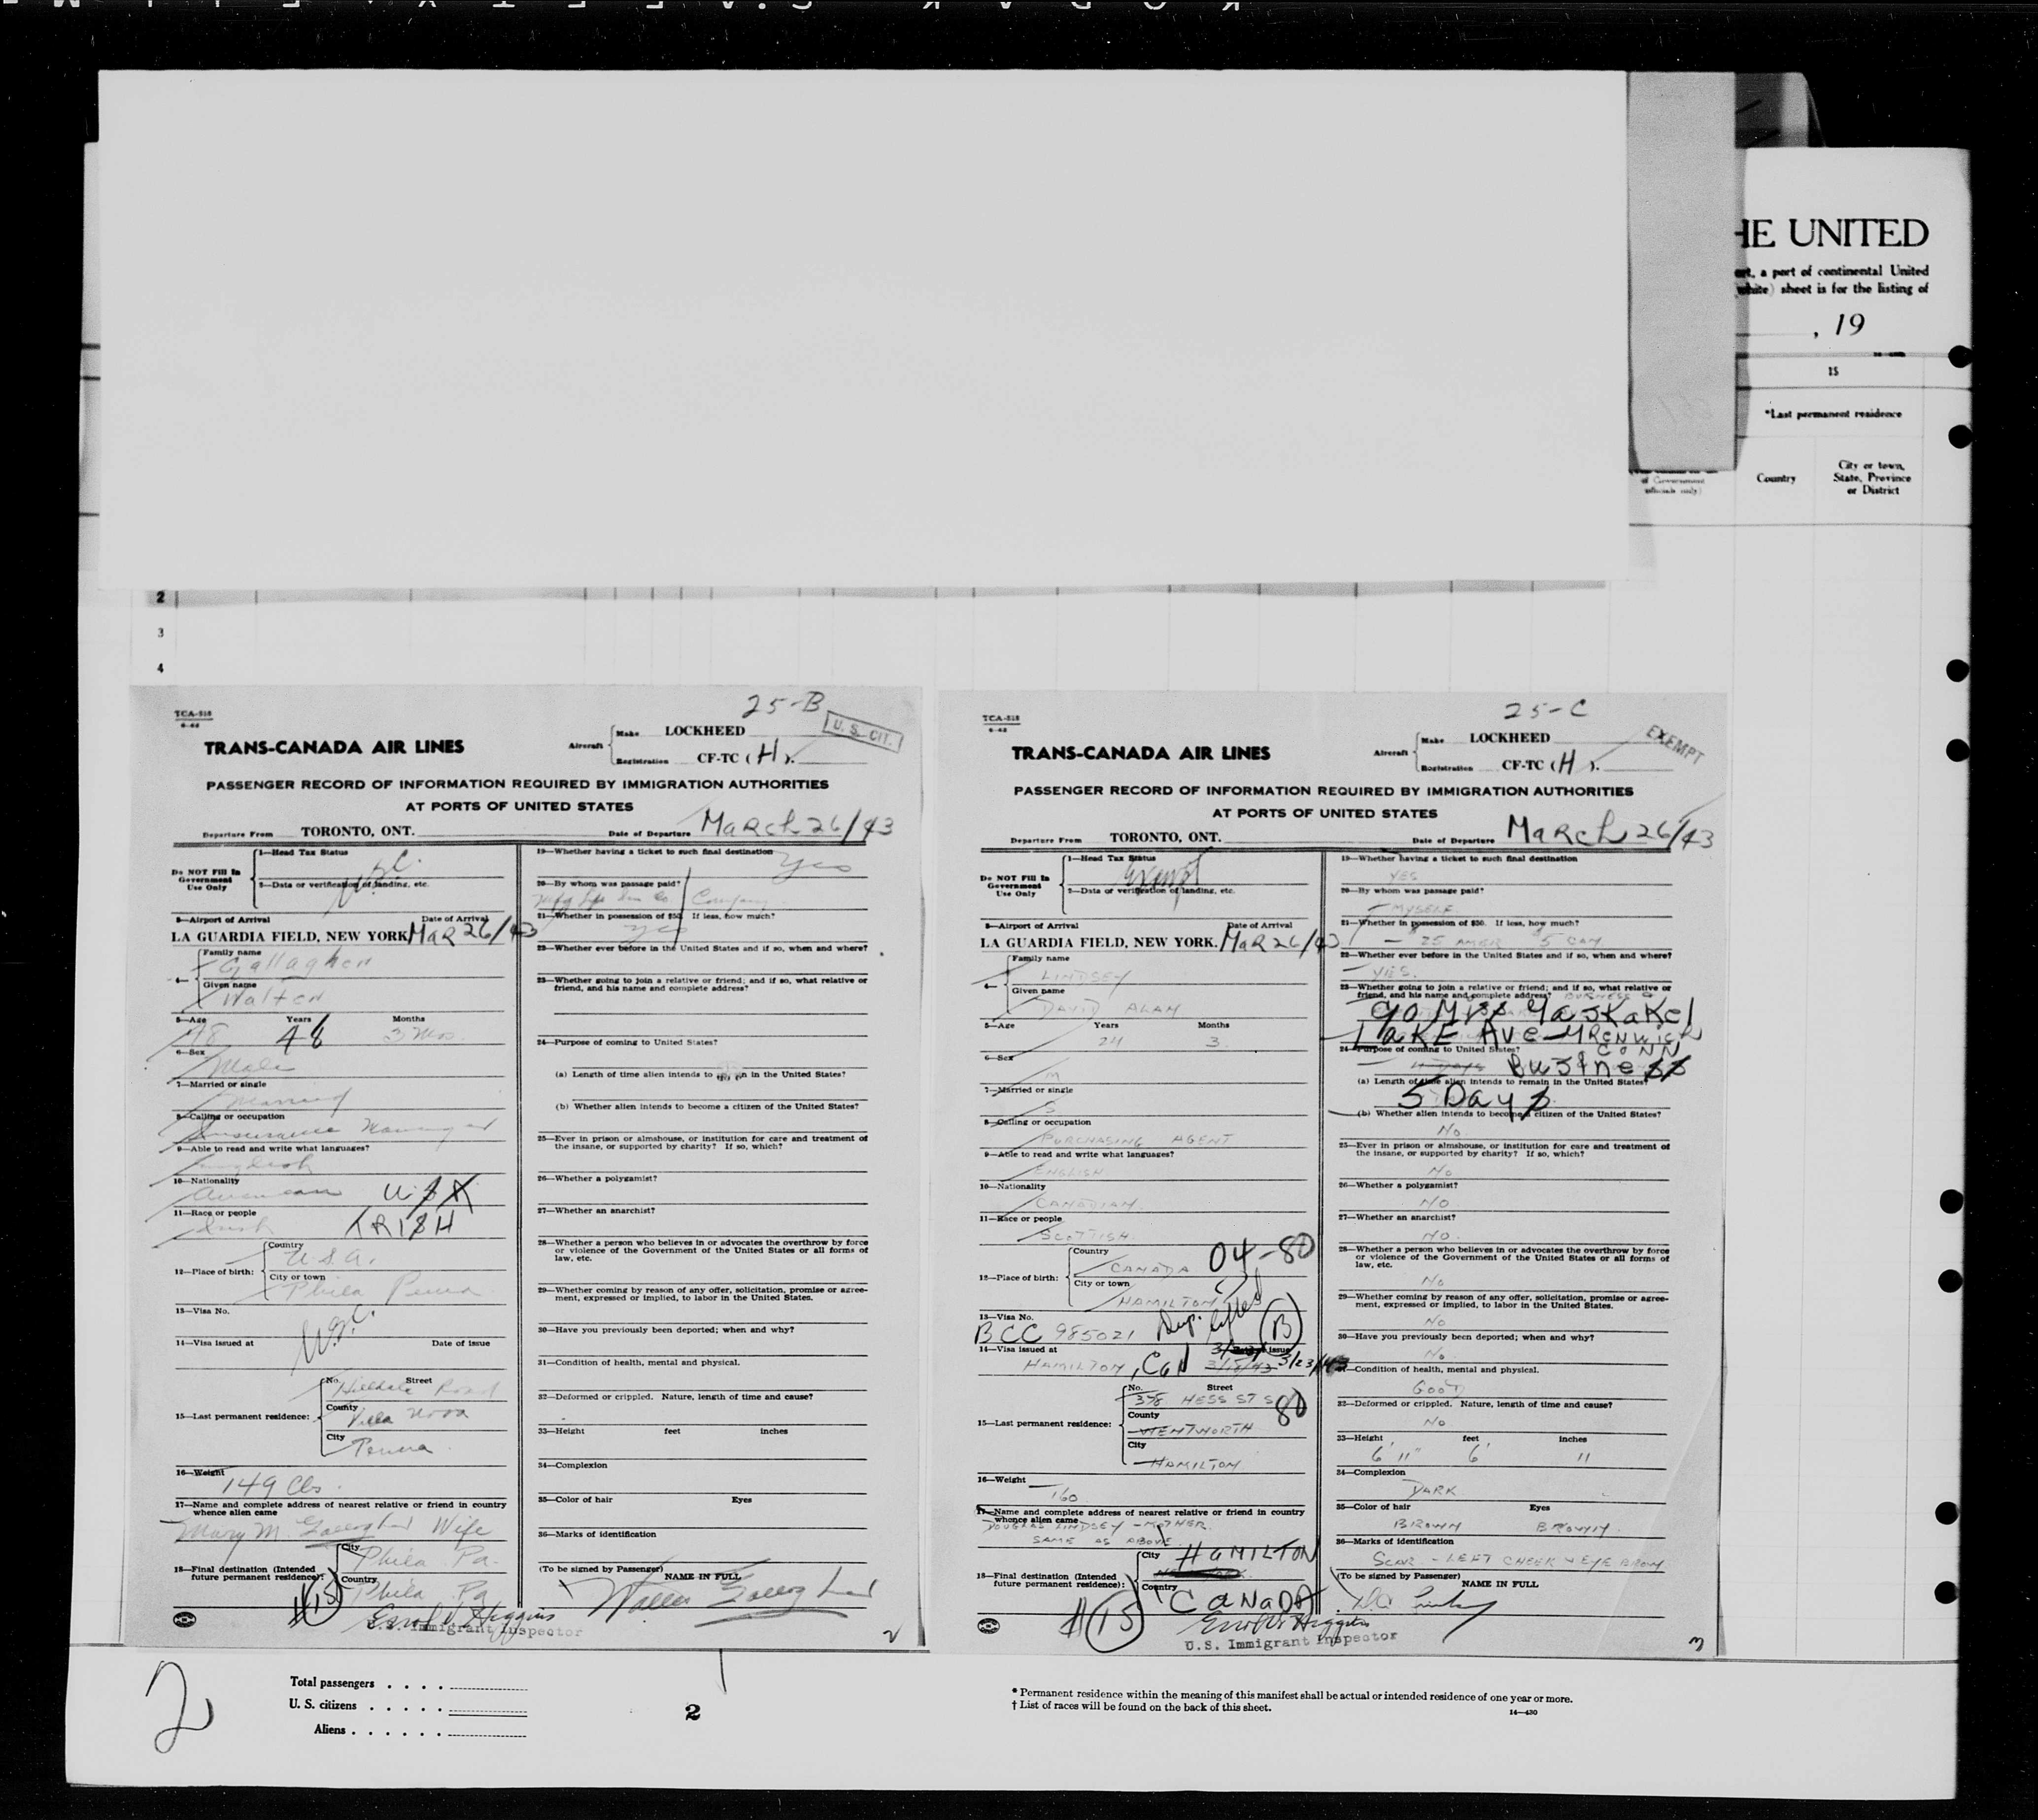 HE UNITED
ort, a port of continental United
(white) sheet is for the listing of
, 19
15
*Last permanent residence
of Government
officials only)
Country
City or town,
State, Province
or District
2
3
4
25-B
TCA-518
TRANS-CANADA AIR LINES
Aircraft
Make LOCKHEED
Registration CF-TC (H).
U. S. CIT.
PASSENGER RECORD OF INFORMATION REQUIRED BY IMMIGRATION AUTHORITIES
AT PORTS OF UNITED STATES
Departure From TORONTO, ONT.
Date of Departure March 26/43
Do NOT Fill In
Government
Use Only
1—Head Tax Status
2—Data or verification of landing, etc.
3—Airport of Arrival Date of Arrival
LA GUARDIA FIELD, NEW YORK. Mar 26/43
4—
Family name
Gallagher
Given name
Walter
5—Age Years Months
48 48 3 Mos
6—Sex
Male
7—Married or single
Married
8—Calling or occupation
Insurance Manager
9—Able to read and write what languages?
English
10—Nationality
American USA
11—Race or people
Irish IRISH
12—Place of birth:
Country
U.S.A.
City or town
Phila Penna
13—Visa No.
14—Visa issued at Date of issue
15—Last permanent residence:
No. Street
Hilldale Road
County
Villa Nova
City
Penna
16—Weight
149 lbs.
17—Name and complete address of nearest relative or friend in country
whence alien came
Mary M. Gallagher Wife
18—Final destination (Intended
future permanent residence):
City
Phila Pa.
Country
Phila Pa
#15
Errol V. Higgins
U.S. Immigrant Inspector
19—Whether having a ticket to such final destination
Yes
20—By whom was passage paid?
Company
21—Whether in possession of $50. If less, how much?
Yes
22—Whether ever before in the United States and if so, when and where?
23—Whether going to join a relative or friend; and if so, what relative or
friend, and his name and complete address?
24—Purpose of coming to United States?
(a) Length of time alien intends to in the United States?
(b) Whether alien intends to become a citizen of the United States?
25—Ever in prison or almshouse, or institution for care and treatment of
the insane, or supported by charity? If so, which?
26—Whether a polygamist?
27—Whether an anarchist?
28—Whether a person who believes in or advocates the overthrow by force
or violence of the Government of the United States or all forms of
law, etc.
29—Whether coming by reason of any offer, solicitation, promise or agree-
ment, expressed or implied, to labor in the United States.
30—Have you previously been deported; when and why?
31—Condition of health, mental and physical.
32—Deformed or crippled. Nature, length of time and cause?
33—Height feet inches
34—Complexion
35—Color of hair Eyes
36—Marks of identification
(To be signed by Passenger)
NAME IN FULL
Walter Gallagher
2
25-C
TCA-518
TRANS-CANADA AIR LINES
Aircraft
Make LOCKHEED
Registration CF-TC (H).
EXEMPT
PASSENGER RECORD OF INFORMATION REQUIRED BY IMMIGRATION AUTHORITIES
AT PORTS OF UNITED STATES
Departure From TORONTO, ONT.
Date of Departure March 26/43
Do NOT Fill In
Government
Use Only
1—Head Tax Status
Exempt
2—Data or verification of landing, etc.
3—Airport of Arrival Date of Arrival
LA GUARDIA FIELD, NEW YORK. Mar 26/43
4—
Family name
LINDSEY
Given name
DAVID ALAN
5—Age Years Months
24 3
6—Sex
M
7—Married or single
S
8—Calling or occupation
PURCHASING AGENT
9—Able to read and write what languages?
ENGLISH
10—Nationality
CANADIAN
11—Race or people
SCOTTISH
12—Place of birth:
Country
CANADA 04-80
City or town
HAMILTON
13—Visa No.
BCC 985021 Dup. lifted B
14—Visa issued at Date of issue
HAMILTON, Can 3/23/43
15—Last permanent residence:
No. Street
378 HESS ST S 80
County
WENTWORTH
City
HAMILTON
16—Weight
160
17—Name and complete address of nearest relative or friend in country
whence alien came
DOUGLAS LINDSEY - MOTHER
SAME AS ABOVE
18—Final destination (Intended
future permanent residence):
City HAMILTON
Country CANADA
#15
Errol V. Higgins
U.S. Immigrant Inspector
19—Whether having a ticket to such final destination
YES
20—By whom was passage paid?
MYSELF
21—Whether in possession of $50. If less, how much?
25 AMER 5 CAN
22—Whether ever before in the United States and if so, when and where?
YES.
23—Whether going to join a relative or friend; and if so, what relative or
friend, and his name and complete address? BUSINESS
LAKE AVE
CONN
24—Purpose of coming to United States?
Business
(a) Length of time alien intends to remain in the United States?
5 Days
(b) Whether alien intends to become a citizen of the United States?
No
25—Ever in prison or almshouse, or institution for care and treatment of
the insane, or supported by charity? If so, which?
No
26—Whether a polygamist?
NO
27—Whether an anarchist?
NO.
28—Whether a person who believes in or advocates the overthrow by force
or violence of the Government of the United States or all forms of
law, etc.
No
29—Whether coming by reason of any offer, solicitation, promise or agree-
ment, expressed or implied, to labor in the United States.
No
30—Have you previously been deported; when and why?
No
31—Condition of health, mental and physical.
GOOD
32—Deformed or crippled. Nature, length of time and cause?
No
33—Height feet inches
6' 11" 6' 11
34—Complexion
DARK
35—Color of hair Eyes
BROWN BROWN
36—Marks of identification
SCAR - LEFT CHEEK & EYE BROW
(To be signed by Passenger)
NAME IN FULL
3
2
Total passengers . . . .
U. S. citizens . . . . .
Aliens . . . . . .
2
* Permanent residence within the meaning of this manifest shall be actual or intended residence of one year or more.
† List of races will be found on the back of this sheet.
14—430